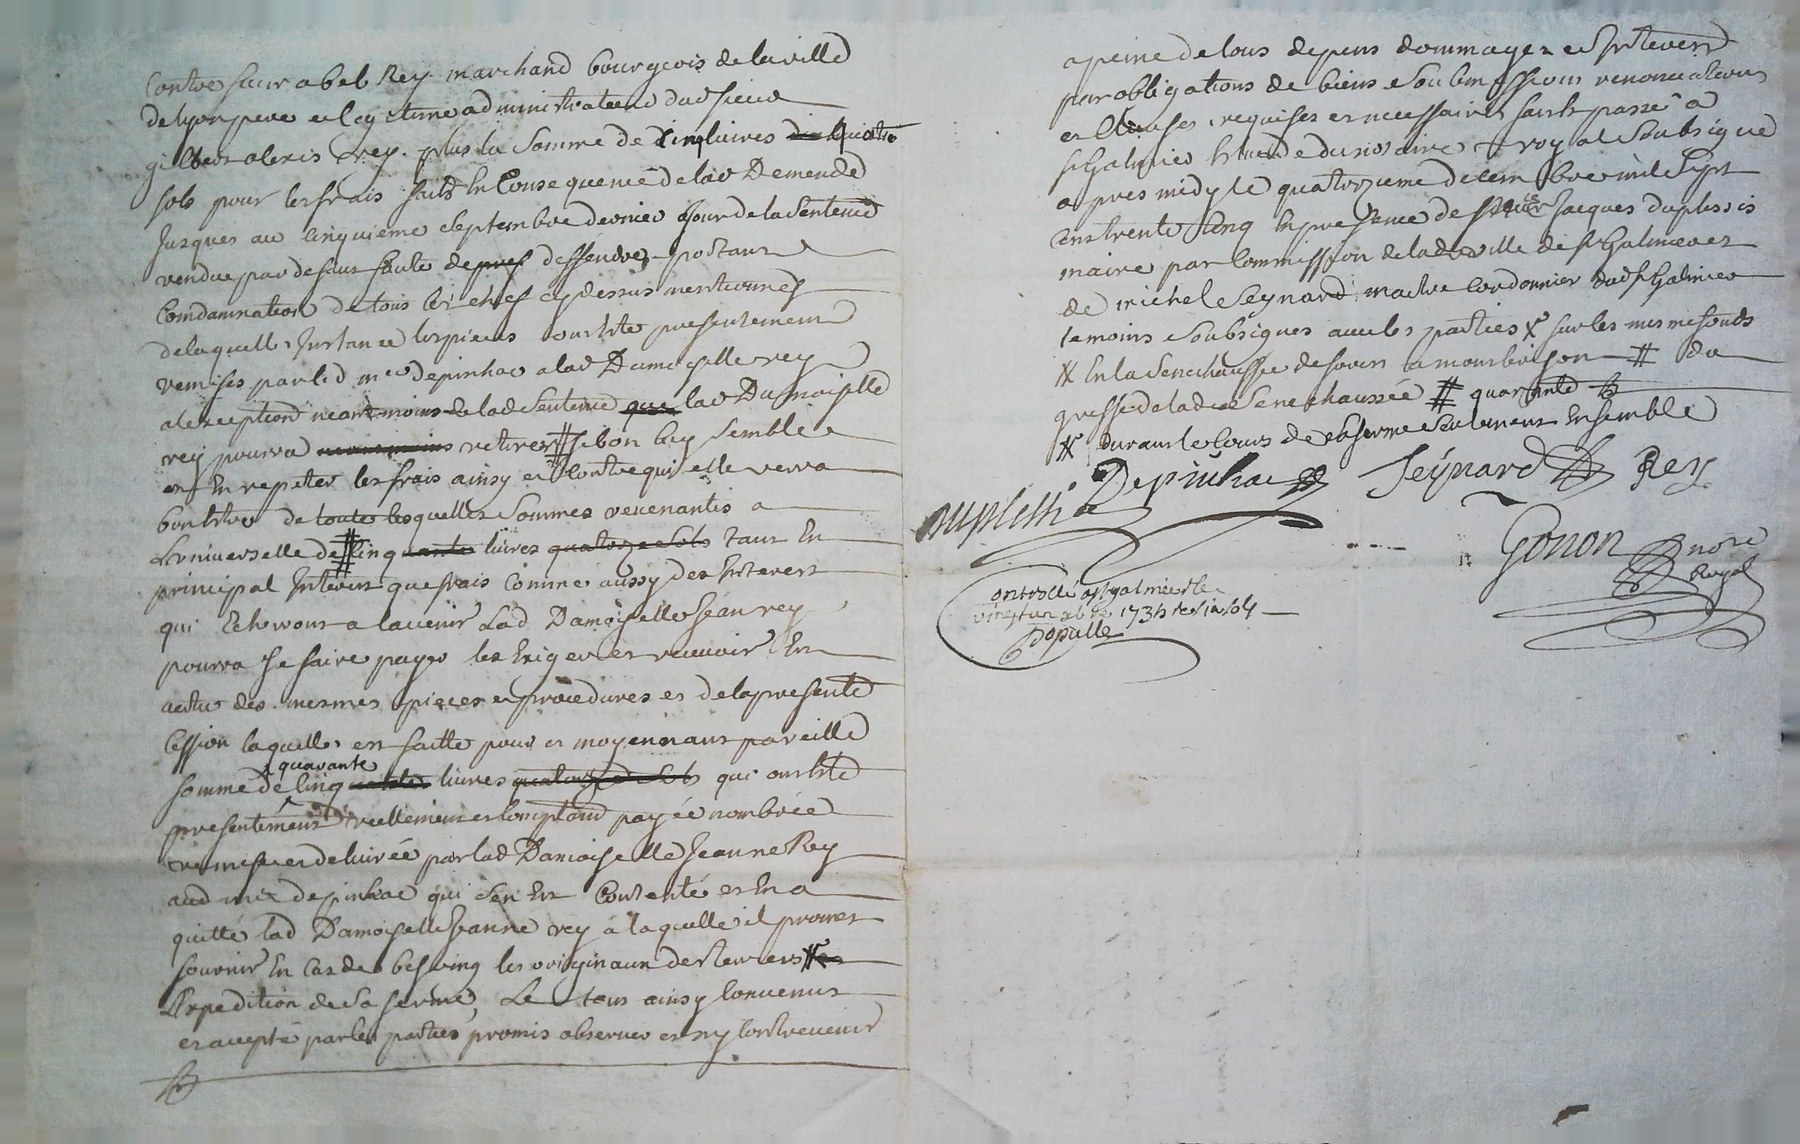 contre sieur abel Rey marchand bourgeois de la ville
de lyon pere et legitime administrateur dud sieur
gilbert alexis rey. plus la somme de cinq livres quatre
sols pour les frais faits En Consequence de lad Demende
Jusques au cinquieme septembre dernier Jour de la sentence
rendue par defaut faute de deffendre portant
Comdamnation de tous les chefs cy dessus mentionnes
de laquelle Instance les pieces ont ete presentement
remises par led me depinhac a lad Damoiselle rey
a l'exception neantmoins de lad sentence que lad Damoiselle
rey pourra retirer # si bon luy semble
et En repeter les frais ainsy et contre qui elle verra
bon Etre de toute lesquelles sommes revenantes a
L'universelle de # cinq livres quatorze sols tant En
principal Interest que frais comme aussy des Interest
qui Echeront a l'avenir Lad Damoiselle Jean rey
pourra se faire payer les Exiger et recevoir En
vertu des mesmes pieces et procedures et de la presente
Cession laquelle est faitte pour et moyennant pareille
quarante
somme de cinq livres quatorze sols qui ont ete
presentement reellement et comptant payée nombrée
remise et delivrée par lad Damoiselle Jeanne Rey
aud me depinhac qui s'en Est Contenté et En a
quitté lad Damoiselle Jeanne rey a laquelle il promet
fournir En cas de besoing les originaux
Expedition de sa ferme, Le tout ainsy convenus
et accepté par les parties, promis observer et ny contrevenir
a peine de tous depens dommages et Interest
par obligations de biens soubmissions renonciations
et clauses requises et necessaires fait et passé a
st Galmier Etude du notaire royal soubsigné
apres midy le quatorzieme decembre mil sept
cens trente cinq En presence de sieur Jacques duplessis
maire par Commission de lad ville de st Galmier et
de michel Seynard maitre cordonnier dud st Galmier
temoins soubsignes avec les parties X sur les mesme fonds
X En la senechaussée de forest a montbrison # du
greffe de lad senechaussée # quarante
X durant le cours de sa ferme seulement Ensemble
duplessis Depinhac Seÿnard Rey
Gonon nore
Royal
Controllé a st galmier le
vingt un xbre 1735 recu
Populle